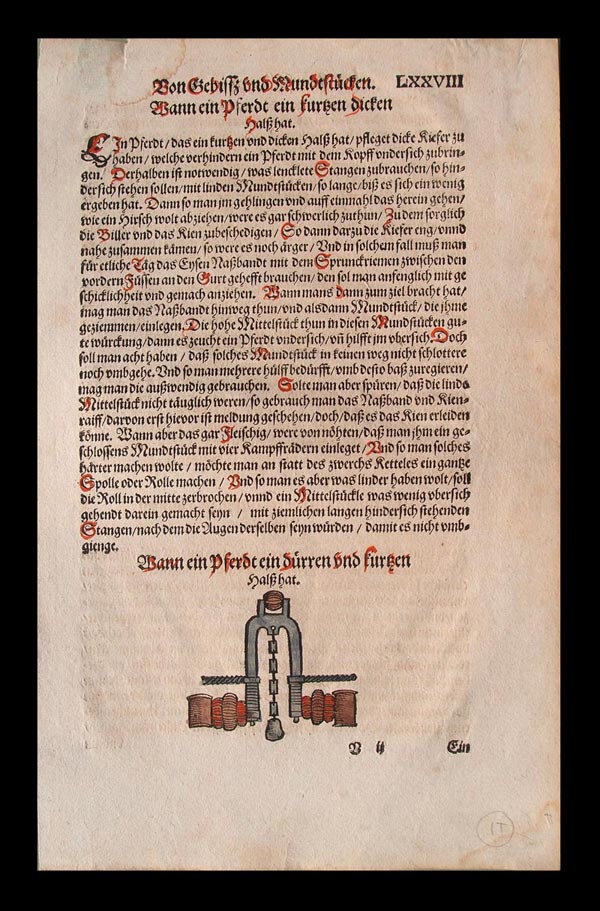 Von Gebissz vnd Mundtstücken. LXXVIII
Wann ein Pferdt ein kurtzen dicken
Halß hat.
EIn Pferdt / das ein kurtzen vnd dicken Halß hat / pfleget dicke Kiefer zu
haben / welche verhindern ein Pferdt mit dem Kopff vndersich zubrin-
gen. Derhalben ist notwendig / was lencklete Stangen zubrauchen / so hin-
dersich stehen sollen / mit linden Mundtstücken / so lange / biß es sich ein wenig
ergeben hat. Dann so man jm gehlingen vnd auff einmahl das herein gehen /
wie ein Hirsch wolt abziehen / were es gar schwerlich zuthun / Zu dem sorglich
die Biller vnd das Kien zubeschedigen / So dann darzu die Kiefer eng / vnnd
nahe zusammen kämen / so were es noch ärger / Vnd in solchem fall muß man
für etliche Täg das Eysen Naßbandt mit dem Sprunckriemen zwischen den
vordern Füssen an den Gurt gehefft brauchen / den sol man anfenglich mit ge
schicklichheit vnd gemach anziehen. Wann mans dann zum ziel bracht hat /
mag man das Naßbandt hinweg thun / vnd alsdann Mundtstück / die jhme
geziemmen / einlegen. Die hohe Mittelstück thun in diesen Mundtstücken gu-
te würckung / dann es zeucht ein Pferdt vndersich / vñ hilfft jm vbersich. Doch
soll man acht haben / daß solches Mundtstück in keinen weg nicht schlottere
noch vmbgehe. Vnd so man mehrere hülff bedürfft / vmb desto baß zuregieren /
mag man die außwendig gebrauchen. Solte man aber spüren / daß die linde
Mittelstück nicht täuglich weren / so gebrauch man das Naßband vnd Kien-
raiff / darvon erst hievor ist meldung geschehen / doch / daß es das Kien erleiden
könne. Wann aber das gar fleischig / were von nöhten / daß man jhm ein ge-
schlossens Mundtstück mit vier Kampffrädern einleget / Vnd so man solches
härter machen wolte / möchte man an statt des zwerchs Ketteles ein gantze
Spolle oder Rolle machen / Vnd so man es aber was linder haben wolt / soll
die Roll in der mitte zerbrochen / vnnd ein Mittelstückle was wenig vbersich
gehendt darein gemacht seyn / mit ziemlichen langen hindersich stehenden
Stangen / nach dem die Augen derselben seyn würden / damit es nicht vmb-
gienge.
Wann ein Pferdt ein dürren vnd kurtzen
Halß hat.
V ij Ein
IT